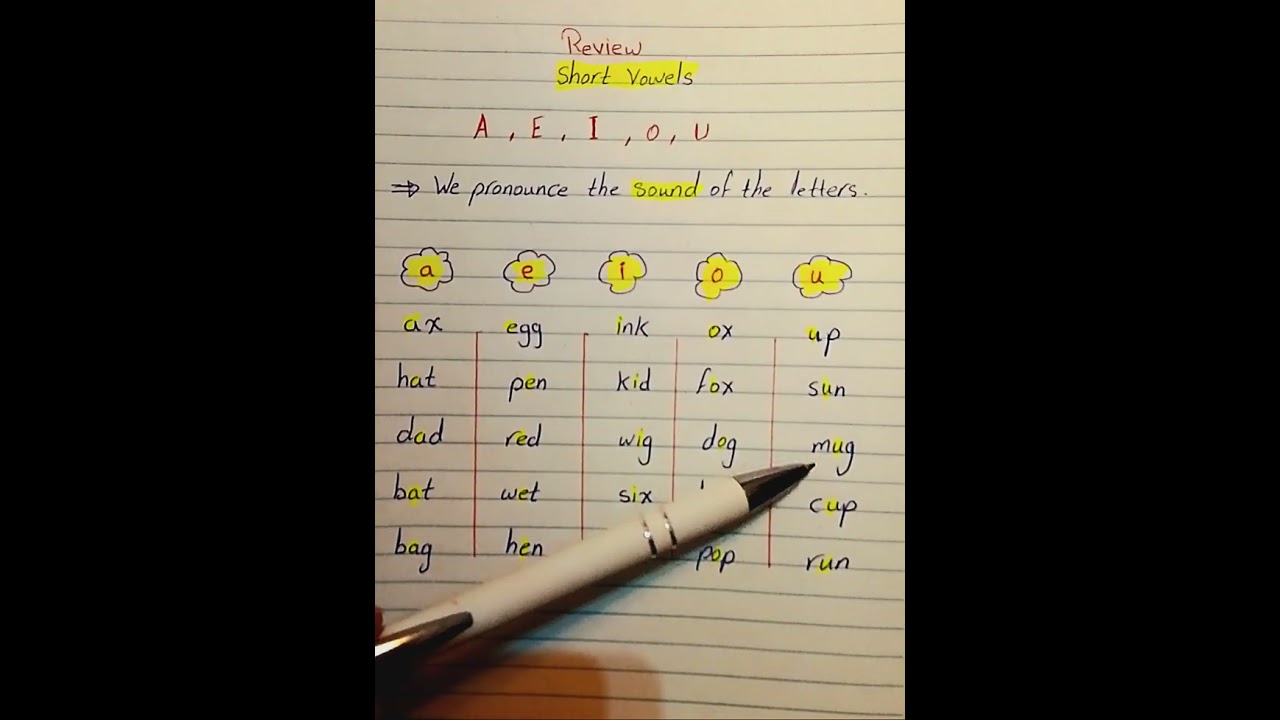 Review
Short Vowels
A , E , I , O , U
⇒ We pronounce the sound of the letters.
a e i o u
ax egg ink ox up
hat pen kid fox sun
dad red wig dog mug
bat wet six cup
bag hen pop run